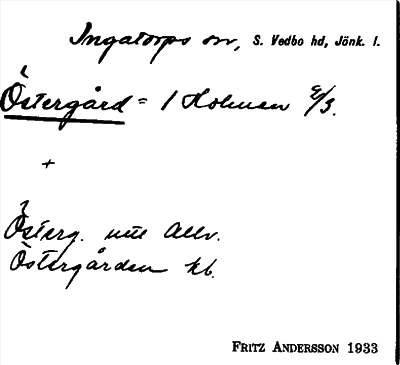 Ingatorps sn, S. Vedbo hd, Jönk. l.
Östergård = 1 Holmen 2/3.
+
Österg. utt. Allv.
Östergården kb.
FRITZ ANDERSSON 1933